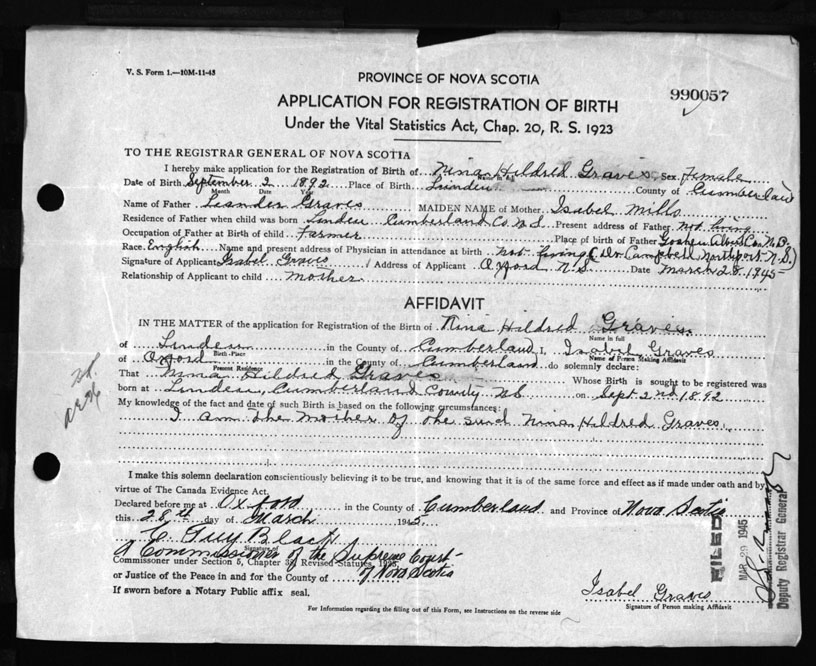 V. S. Form 1.—10M-11-43
PROVINCE OF NOVA SCOTIA
990057
APPLICATION FOR REGISTRATION OF BIRTH
Under the Vital Statistics Act, Chap. 20, R. S. 1923
TO THE REGISTRAR GENERAL OF NOVA SCOTIA
I hereby make application for the Registration of Birth of Nina Hildred Graves Sex Female
Date of Birth September 2 1892 Place of Birth Linden County of Cumberland
Month Date Year
Name of Father Leander Graves MAIDEN NAME of Mother Isabel Mills
Residence of Father when child was born Linden Cumberland Co N.S. Present address of Father Not living
Occupation of Father at Birth of child Farmer Place of birth of Father Goshen Albert Co. N.B.
Race English Name and present address of Physician in attendance at birth Not living (Dr. Campbell Northport N.S.)
Signature of Applicant Isabel Graves Address of Applicant Oxford N.S. Date March 28. 1945
Relationship of Applicant to child mother
AFFIDAVIT
IN THE MATTER of the application for Registration of the Birth of Nina Hildred Graves
Name in full
of Linden in the County of Cumberland I, Isabel Graves
Birth-Place Name of Person Making Affidavit
of Oxford in the County of Cumberland do solemnly declare:
Present Residence
That Nina Hildred Graves Whose Birth is sought to be registered was
born at Linden, Cumberland County NS on Sept 2nd 1892
My knowledge of the fact and date of such Birth is based on the following circumstances:
I am the mother of the said Nina Hildred Graves.
I make this solemn declaration conscientiously believing it to be true, and knowing that it is of the same force and effect as if made under oath and by
virtue of The Canada Evidence Act.
Declared before me at Oxford in the County of Cumberland and Province of Nova Scotia
this 28th day of March 1945.
E. Guy Black
Signature
A Commissioner of the Supreme Court
Commissioner under Section 5, Chapter 38, Revised Statutes, 1923,
of Nova Scotia
or Justice of the Peace in and for the County of
If sworn before a Notary Public affix seal.
Isabel Graves
Signature of Person making Affidavit
For Information regarding the filling out of this Form, see Instructions on the reverse side
FILED
MAR 29 1945
Deputy Registrar General